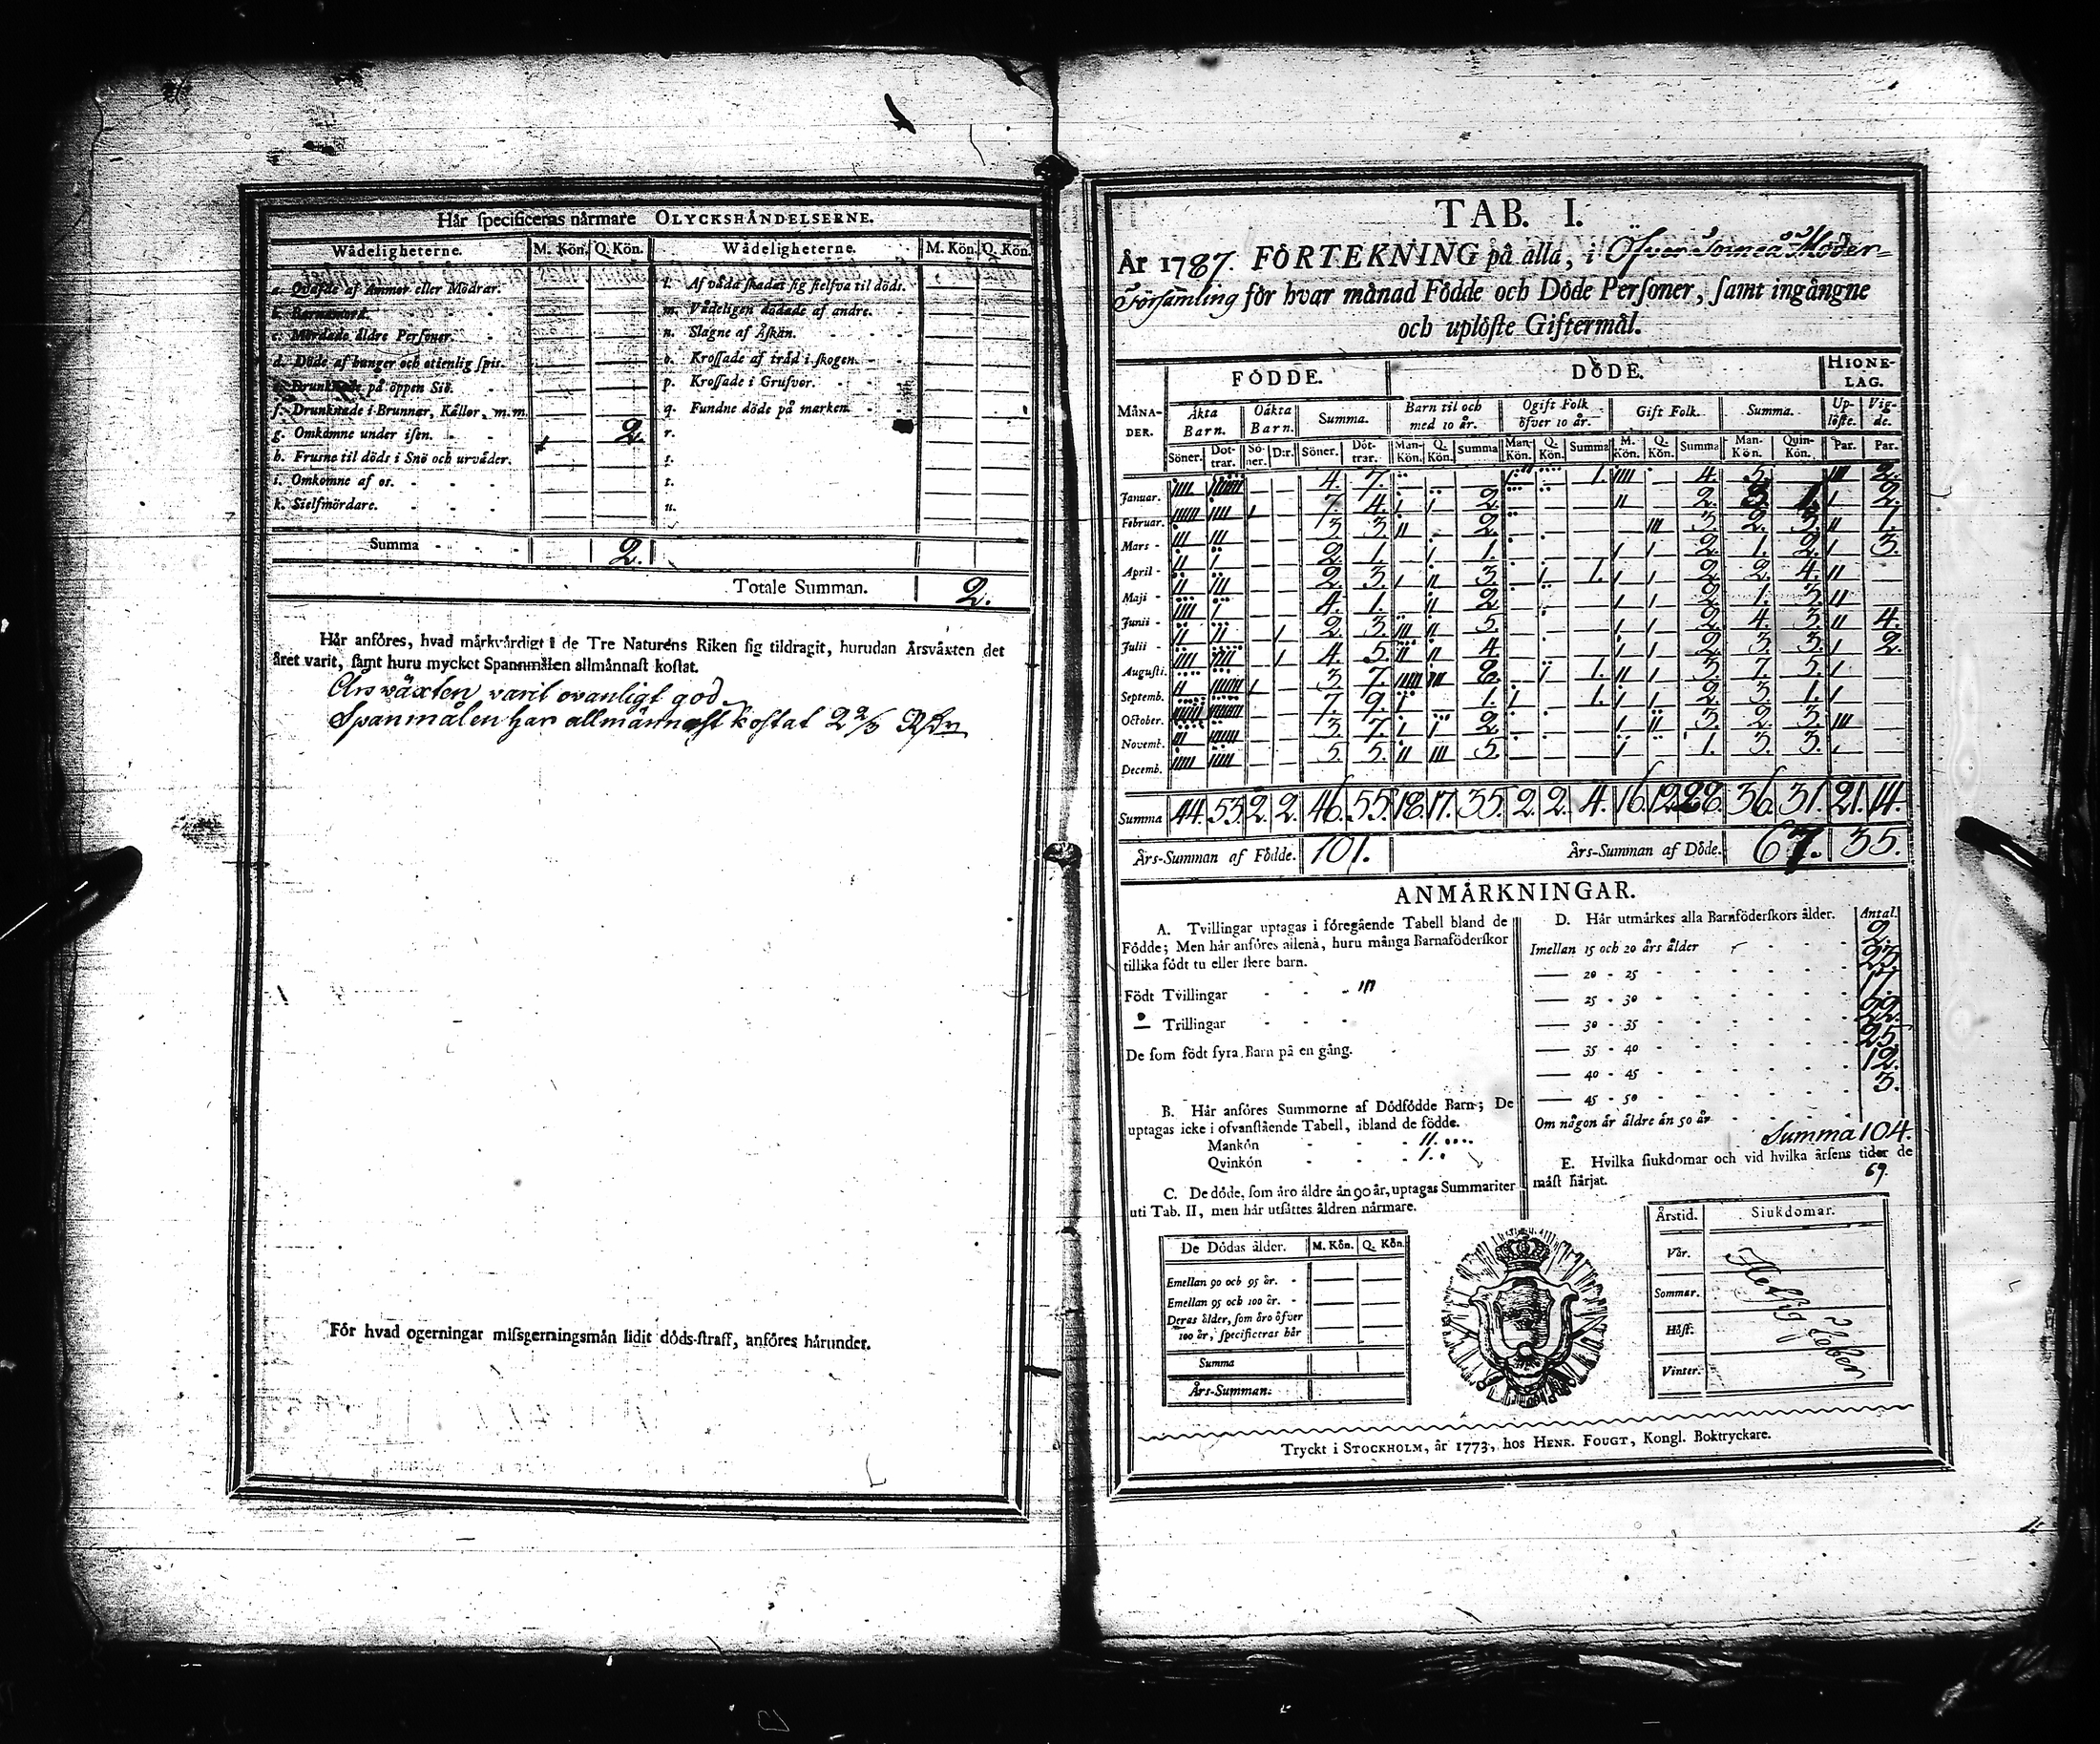 Här specificeras närmare OLYCKSHÄNDELSERNE.
Wådeligheterne. M. Kön. Q. Kön. Wådeligheterne. M. Kön. Q. Kön.
a. Qväfde af Ammor eller Mödrar. l. Af våda skadat sig sielfva til döds.
b. Barnamord. m. Vådeligen dödade af andre.
c. Mördade äldre Personer. n. Slagne af Åskan.
d. Döde af hunger och otienlig spis. o. Krossade af träd i skogen.
e. Drunknade på öppen Siö. p. Krossade i Grufvor.
f. Drunknade i Brunnar, Källor, m.m. q. Fundne döde på marken.
g. Omkomne under isen. 2. r.
h. Frusne til döds i Snö och urväder. s.
i. Omkomne af os. t.
k. Sielfmördare. u.
Summa 2.
Totale Summan. 2.
Här anföres, hvad märkvärdigt i de Tre Naturens Riken sig tildragit, hurudan Årsväxten det
året varit, samt huru mycket Spannmålen allmännast kostat.
Årsväxten varit ovanligt god
Spanmålen har allmännast kostat 2 2/3 Rdr
För hvad ogerningar missgerningsmän lidit döds-straff, anföres härunder.
TAB. I.
År 1787. FÖRTEKNING på alla, i Öfver Torneå Moder-
Församling för hvar månad Födde och Döde Personer, samt ingångne
och uplöste Giftermål.
MÅNADER. FÖDDE. DÖDE. HIONELAG.
Äkta Barn. Oäkta Barn. Summa. Barn til och med 10 år. Ogift Folk öfver 10 år. Gift Folk. Summa. Uplöste. Vigde.
Söner. Döttrar. Söner. D:r. Söner. Döttrar. Man-Kön. Q. Kön. Summa Man-Kön. Q. Kön. Summa M. Kön. Q. Kön. Summa Man-Kön. Quin-Kön. Par. Par.
Januar. 4. 7. 1. 4. 5. 2.
Februar. 7. 4. 2. 2. 3. 1. 2.
Mars 3. 3. 2. 3. 2. 3. 1.
April 2. 1. 1. 2. 1. 2. 3.
Maji 2. 3. 3. 1. 2. 2. 4.
Junii 4. 1. 2. 2. 1. 3.
Julii 2. 3. 5. 2. 4. 3. 4.
Augusti. 4. 5. 4. 2. 3. 3. 2.
Septemb. 3. 7. 8. 1. 3. 7. 5.
October. 7. 9. 1. 1. 2. 3. 1.
Novemb. 3. 7. 2. 3. 2. 3.
Decemb. 5. 5. 5. 1. 3. 3.
Summa 44. 53. 2. 2. 46. 55. 18. 17. 35. 2. 2. 4. 16. 12. 28. 36. 31. 21. 14.
Års-Summan af Födde. 101. Års-Summan af Döde. 67. 35.
ANMÄRKNINGAR.
A. Tvillingar uptagas i föregående Tabell bland de
Födde; Men här anföres allenå, huru många Barnaföderskor
tillika födt tu eller flere barn.
Födt Tvillingar III
— Trillingar
De som födt fyra Barn på en gång.
B. Här anföres Summorne af Dödfödde Barn; De
uptagas icke i ofvanstående Tabell, ibland de födde.
Mankön 11.
Qvinkön 1.
C. De döde, som äro äldre än 90 år, uptagas Summariter
uti Tab. II, men här utsättes åldren närmare.
De Dödas ålder. M. Kön. Q. Kön.
Emellan 90 och 95 år.
Emellan 95 och 100 år.
Deras ålder, som äro öfver
100 år, specificeras här
Summa
Års-Summan.
D. Här utmärkes alla Barnföderskors ålder. Antal.
Imellan 15 och 20 års ålder 2.
— 20 - 25
— 25 - 30
— 30 - 35
— 35 - 40 25.
— 40 - 45 12.
— 45 - 50 3.
Om någon är äldre än 50 år
Summa 104.
E. Hvilka siukdomar och vid hvilka årsens tider de
mäst härjat.
69.
Årstid. Siukdomar.
Vår.
Sommar.
Höst.
Vinter.
Hetsig feber
Tryckt i STOCKHOLM, år 1773, hos HENR. FOUGT, Kongl. Boktryckare.